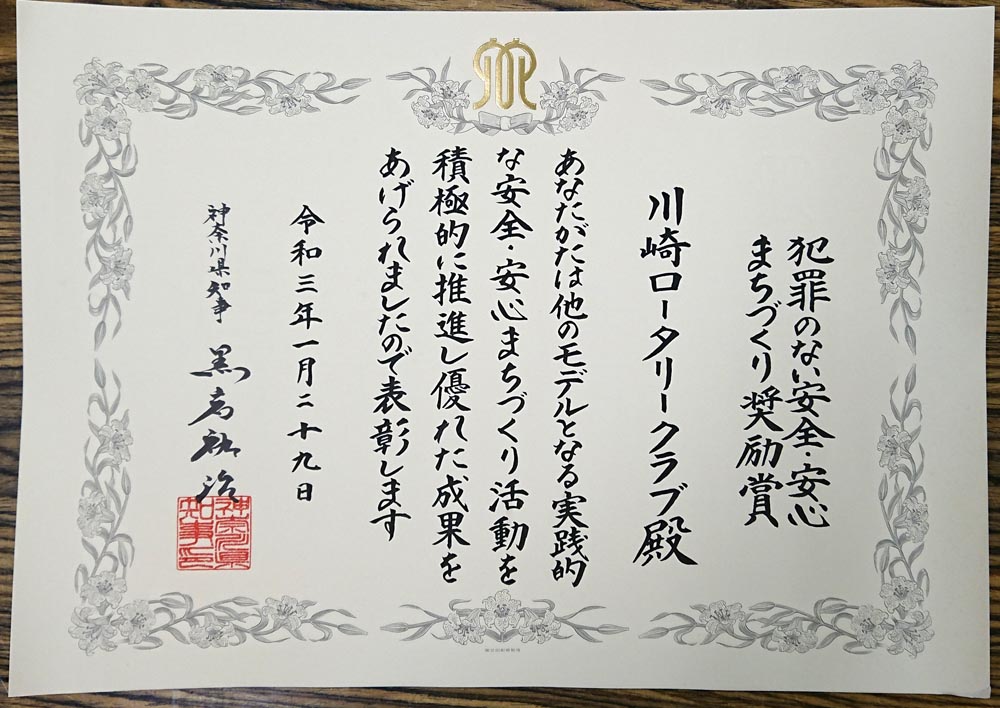 犯罪のない安全・安心
まちづくり奨励賞
川崎ロータリークラブ殿
あなたがたは他のモデルとなる実践的
な安全・安心まちづくり活動を
積極的に推進し優れた成果を
あげられましたので表彰します
令和三年一月二十九日
神奈川県知事 黒岩祐治
神奈川県
知事之印